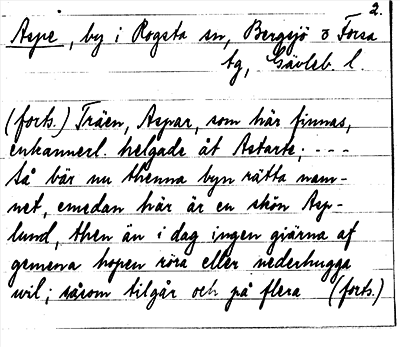 2.
Aspe, by i Rogsta sn, Bergsjö o Forsa
tg, Gävleb. l.
(forts.) Träen, Aspar, som här finnas,
enkannerl. helgade åt Astarte; - - -
Så bär nu thenna byn rätta nam-
net, emedan här är en skön Asp-
lund, then än i dag ingen giärna af
gemena hopen röra eller nederhugga
wil; såsom tilgår och på flera (forts.)